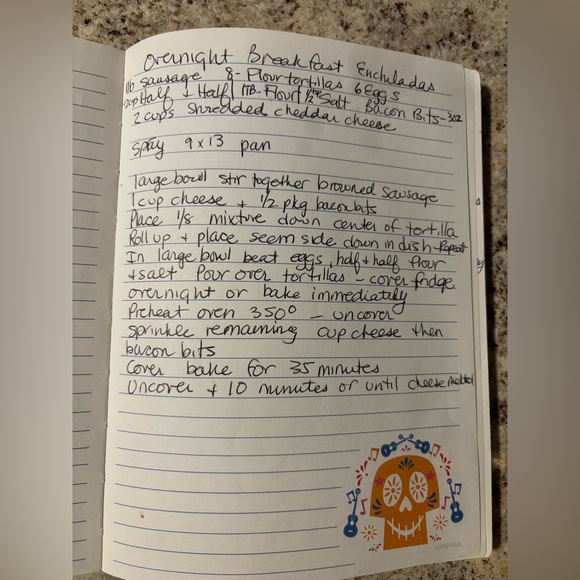 Overnight Breakfast Enchuladas
1lb sausage 8-Flour tortillas 6 Eggs
2cup Half + Half 1TB-Flour 1/2 Salt Bacon Bits-3oz
2 cups shredded cheddar cheese
Spray 9x13 pan
large bowl stir together browned sausage
1 cup cheese + 1/2 pkg bacon bits
Place 1/8 mixture down center of tortilla
Roll up + place seem side down in dish-Repeat
In large bowl beat eggs, half + half flour
+ salt Pour over tortillas - cover fridge
overnight or bake immediately
Preheat oven 350° - uncover
sprinkle remaining cup cheese then
bacon bits
Cover bake for 35 minutes
Uncover + 10 minutes or until cheese melted